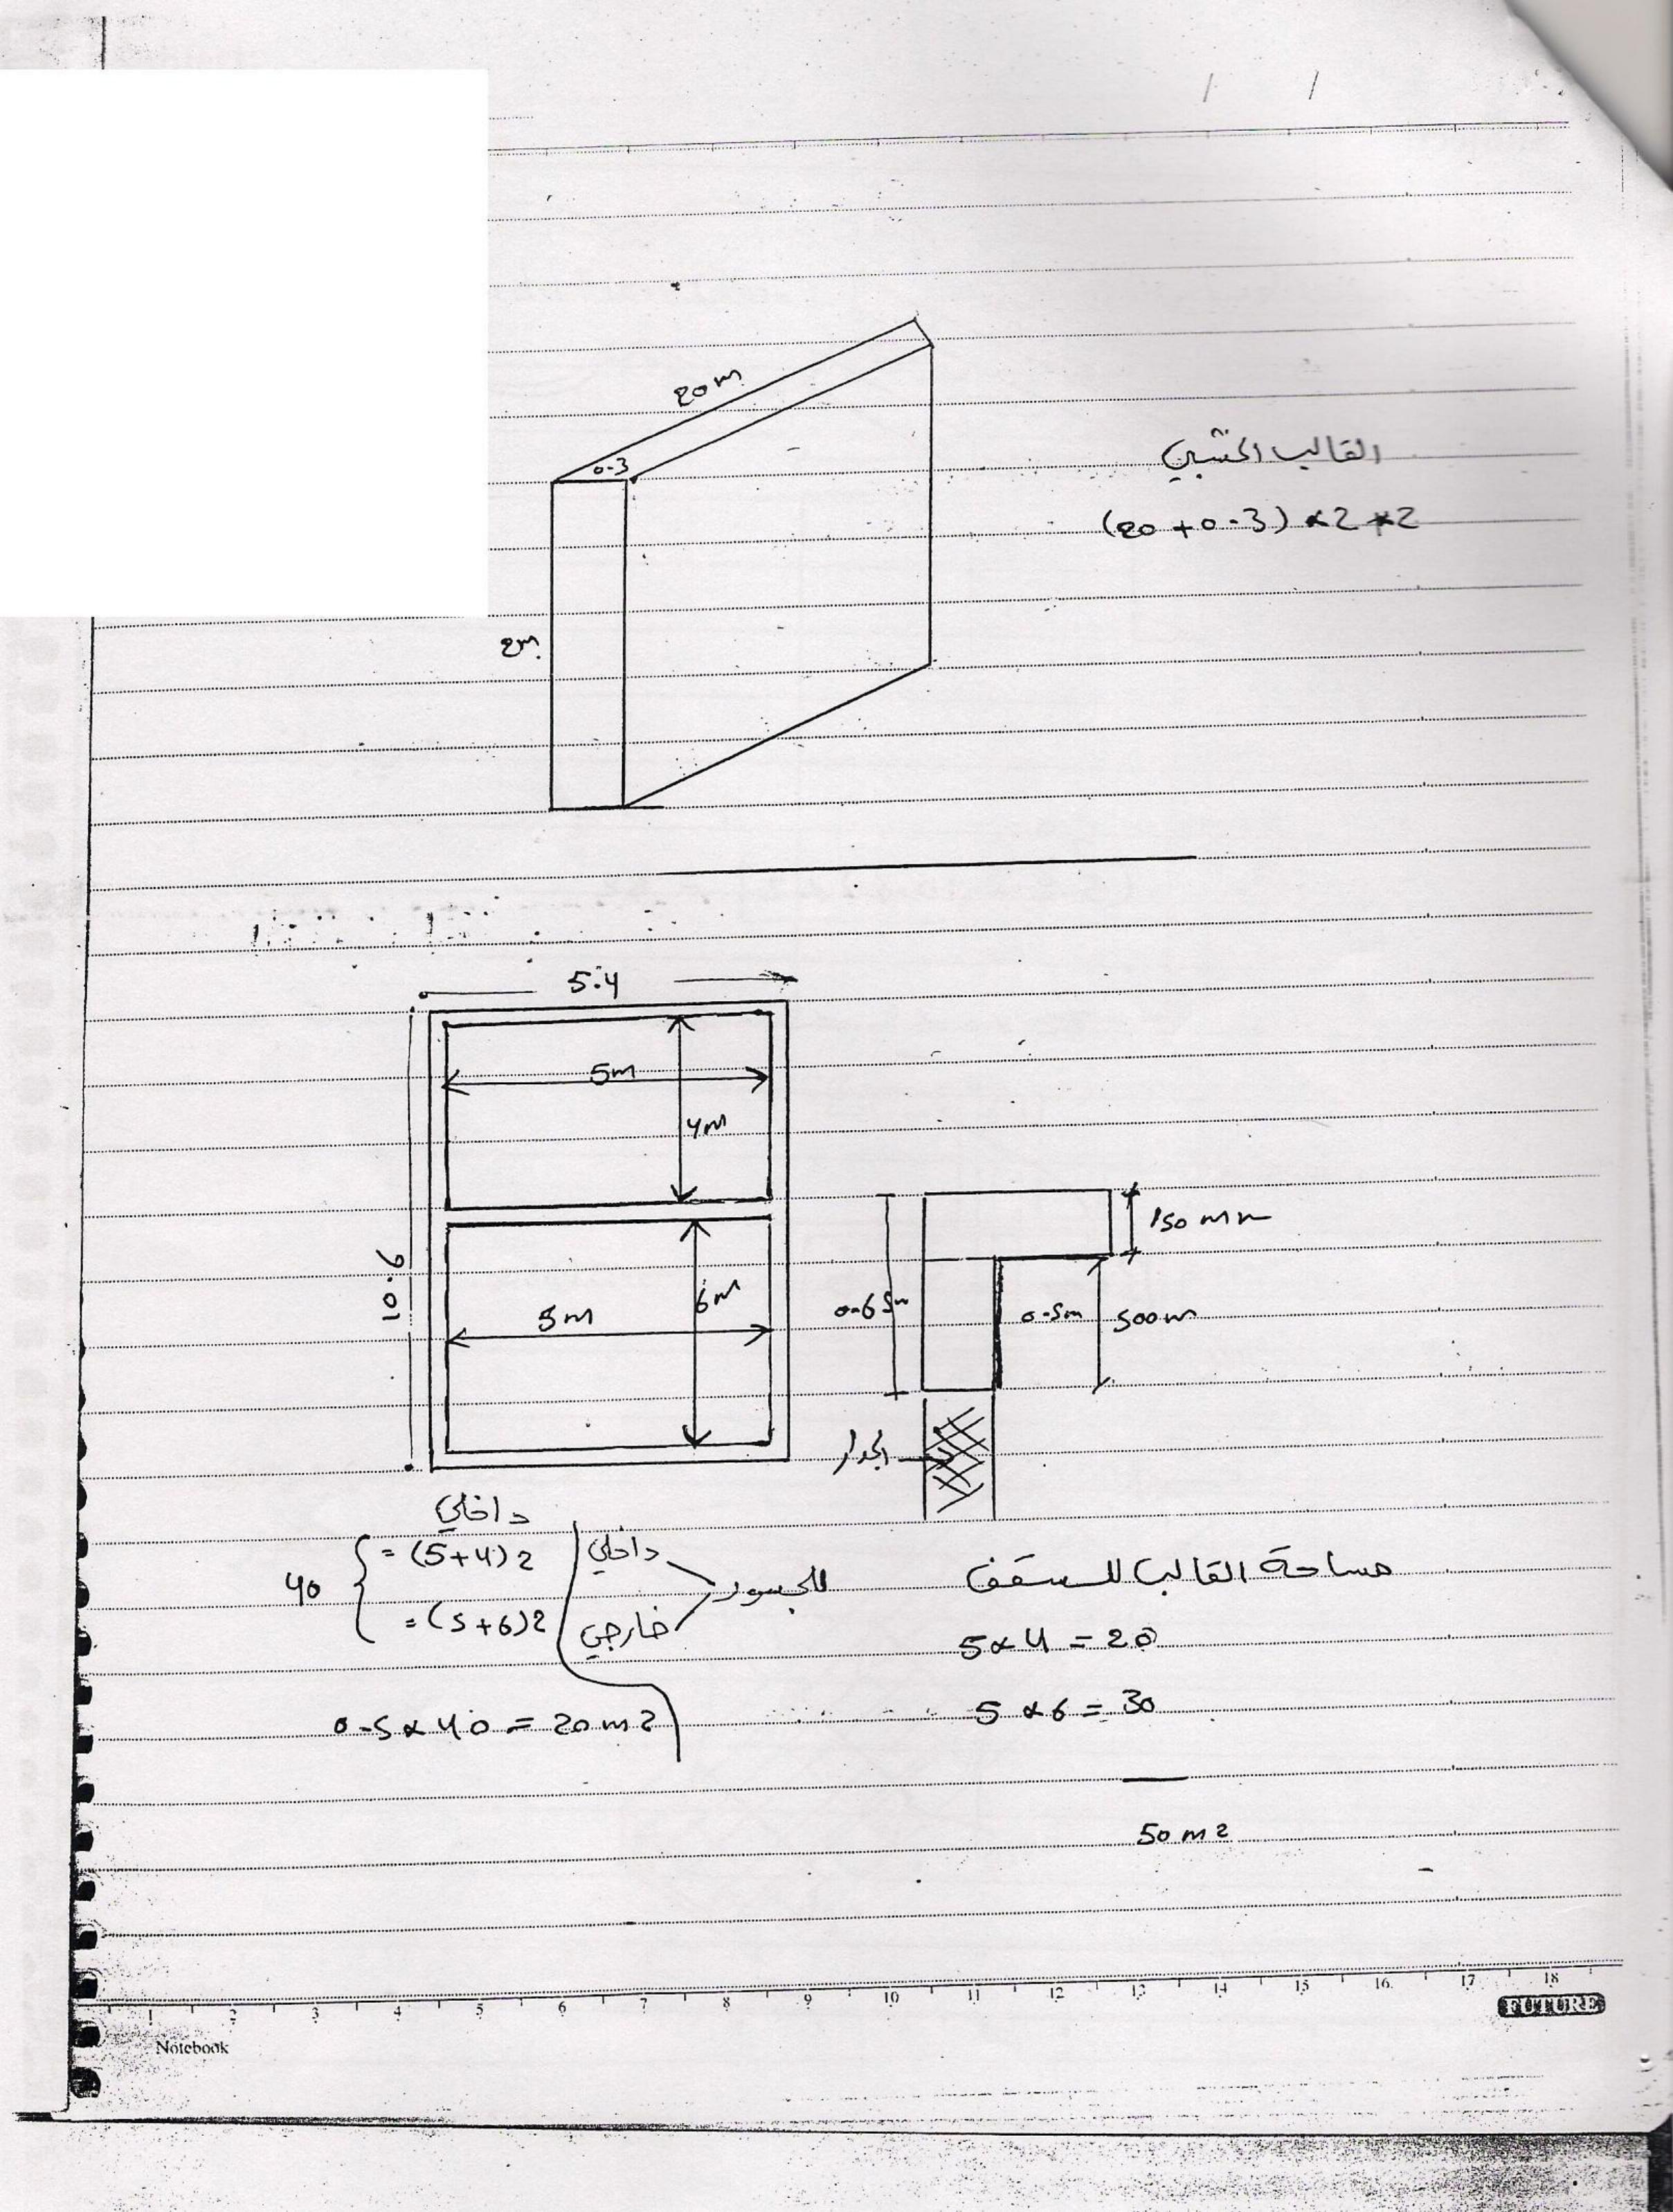 20m
0.3
القالب الخشبي
(20+0.3)*2*2
2m
5.4
5m
4m
10.6
5m
6m
150 mm
0.65m
0.5m
500m
الجدار
داخلي
40 { =(5+4)2
=(5+6)2
داخلي
خارجي
للجسور
0.5*40=20m2
مساحة القالب للسقف
5*4=20
5*6=30
50m2
1 2 3 4 5 6 7 8 9 10 11 12 13 14 15 16 17 18
FUTURE
Notebook